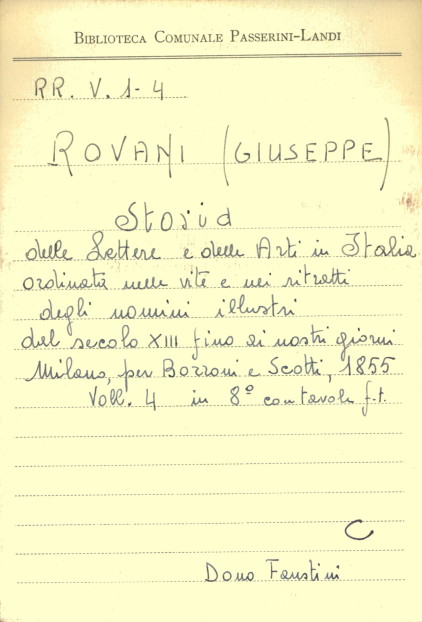 BIBLIOTECA COMUNALE PASSERINI-LANDI
RR. V. 1-4
ROVANI (GIUSEPPE)
Storia
delle Lettere e delle Arti in Italia
ordinata nelle vite e nei ritratti
degli uomini illustri
dal secolo XIII fino ai nostri giorni
Milano, per Borroni e Scotti, 1855
Voll. 4 in 8º con tavole f.t.
C
Dono Faustini